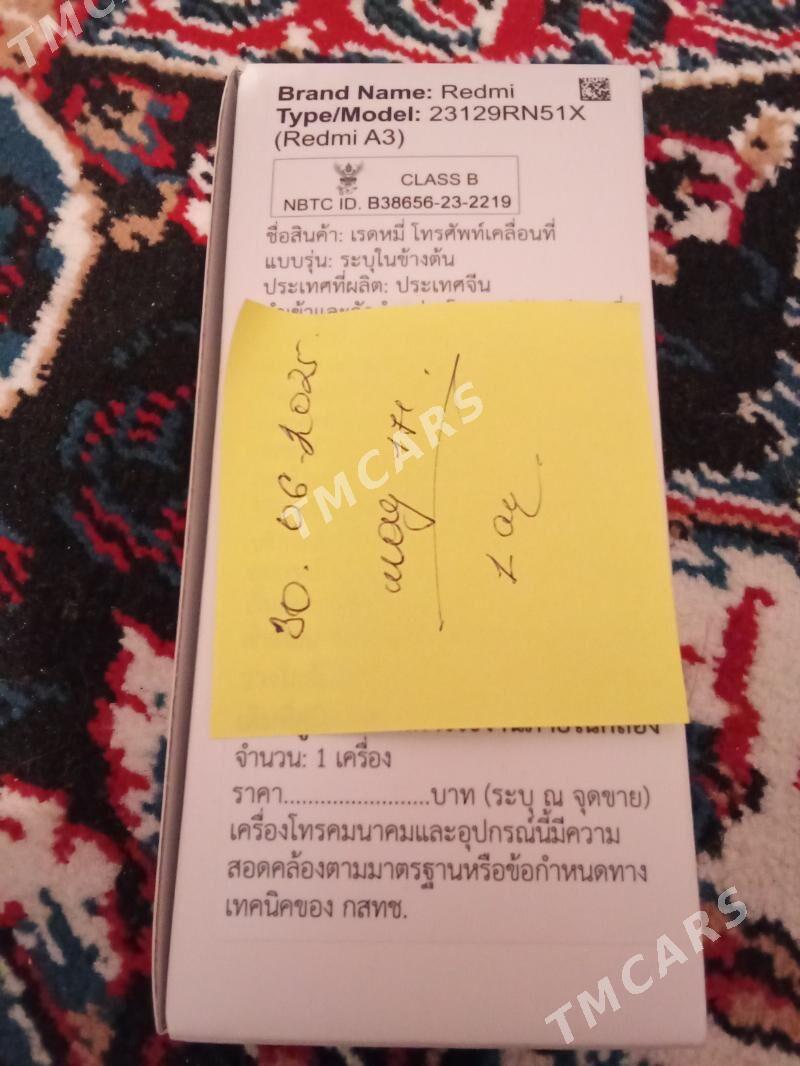 TMCARS
Brand Name: Redmi
Type/Model: 23129RN51X
(Redmi A3)
CLASS B
NBTC ID. B38656-23-2219
ชื่อสินค้า: เรดหมี่ โทรศัพท์เคลื่อนที่
แบบรุ่น: ระบุในข้างต้น
ประเทศที่ผลิต: ประเทศจีน
30.06-2025
TMCARS
จำนวน: 1 เครื่อง
ราคา........................บาท (ระบุ ณ จุดขาย)
เครื่องโทรคมนาคมและอุปกรณ์นี้มีความ
สอดคล้องตามมาตรฐานหรือข้อกำหนดทาง
เทคนิคของ กสทช.
TMCARS